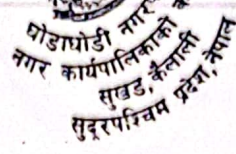 घोडाघोडी नगर
नगर कार्यपालिकाको
सुखड, कैलाली
सुदूरपश्चिम प्रदेश, नेपाल